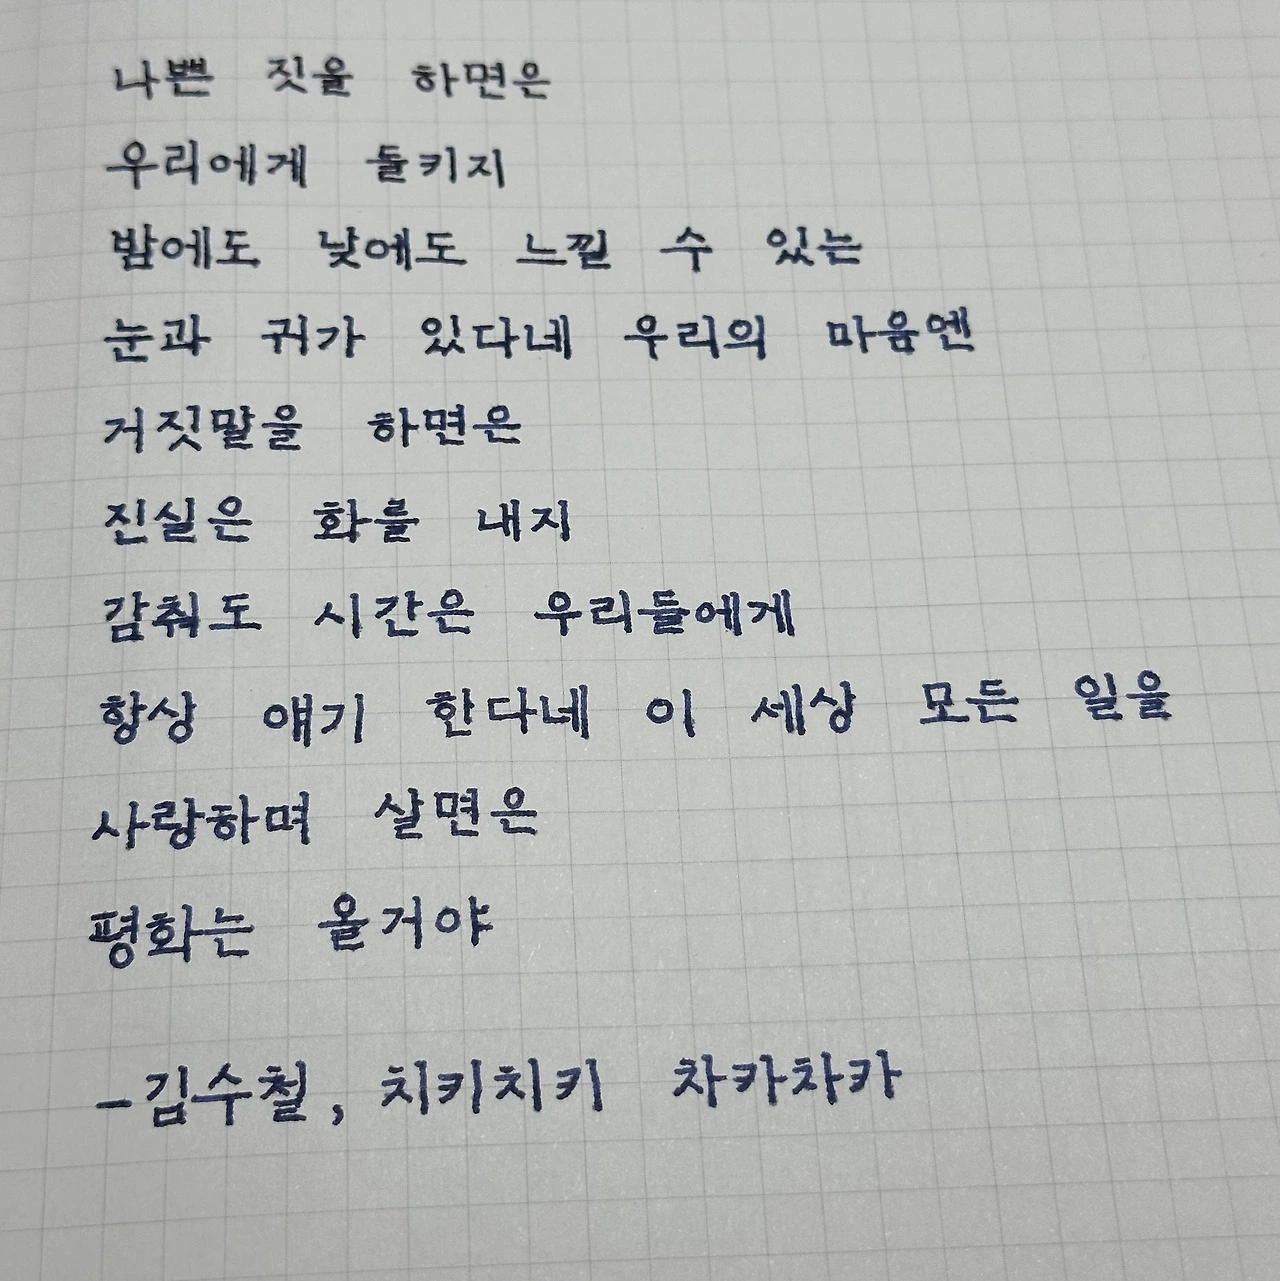 나쁜 짓을 하면은
우리에게 들키지
밤에도 낮에도 느낄 수 있는
눈과 귀가 있다네 우리의 마음엔
거짓말을 하면은
진실은 화를 내지
감춰도 시간은 우리들에게
항상 얘기 한다네 이 세상 모든 일을
사랑하며 살면은
평화는 올거야
-김수철, 치키치키 차카차카